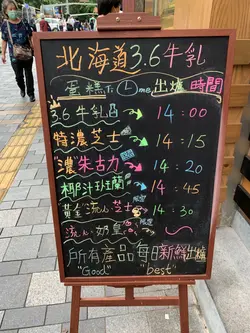 北海道3.6牛乳
蛋糕 出爐時間
3.6牛乳 14:00
特濃芝士 14:15
"濃"朱古力 14:20
椰汁班蘭 14:45
黃金流心芝士 14:30
流心奶皇
所有產品每日新鮮出爐
"Good" "best"